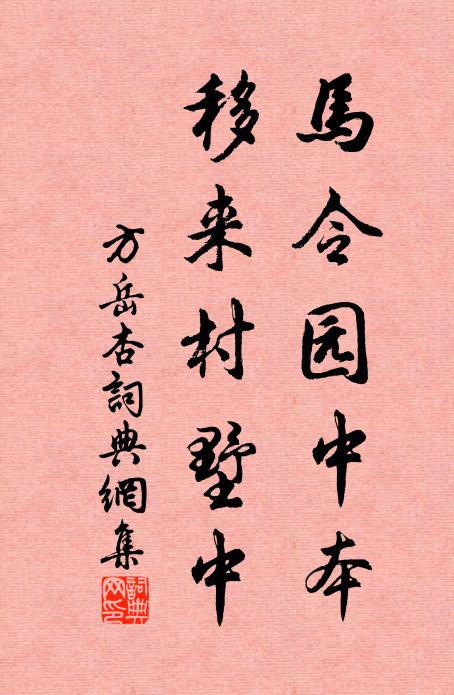 馬令园中本
移来村墅中
方岳杏詞典網集
詞典
网印